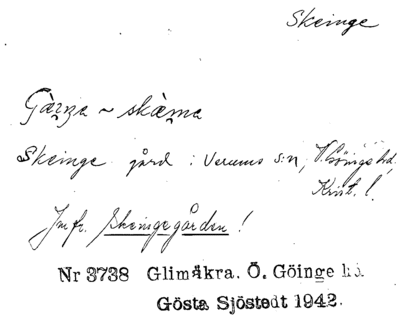 Skeinge
Skeinge gård i Verums s:n, V. Göinge hd.
Krist. l.
Jmfr. Skeingegården!
Nr 3738 Glimåkra. Ö. Göinge hd.
Gösta Sjöstedt 1942.